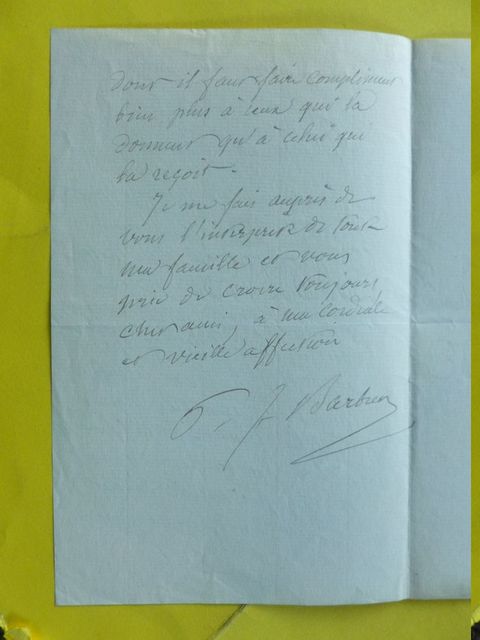 dont il faut faire compliment
bien plus à ceux qui la
donnent qu'à celui qui
la reçoit.
Je me fais auprès de
vous l'interprète de toute
ma famille et vous
prie de croire toujours,
cher ami, à ma cordiale
et vieille affection
J Barbier